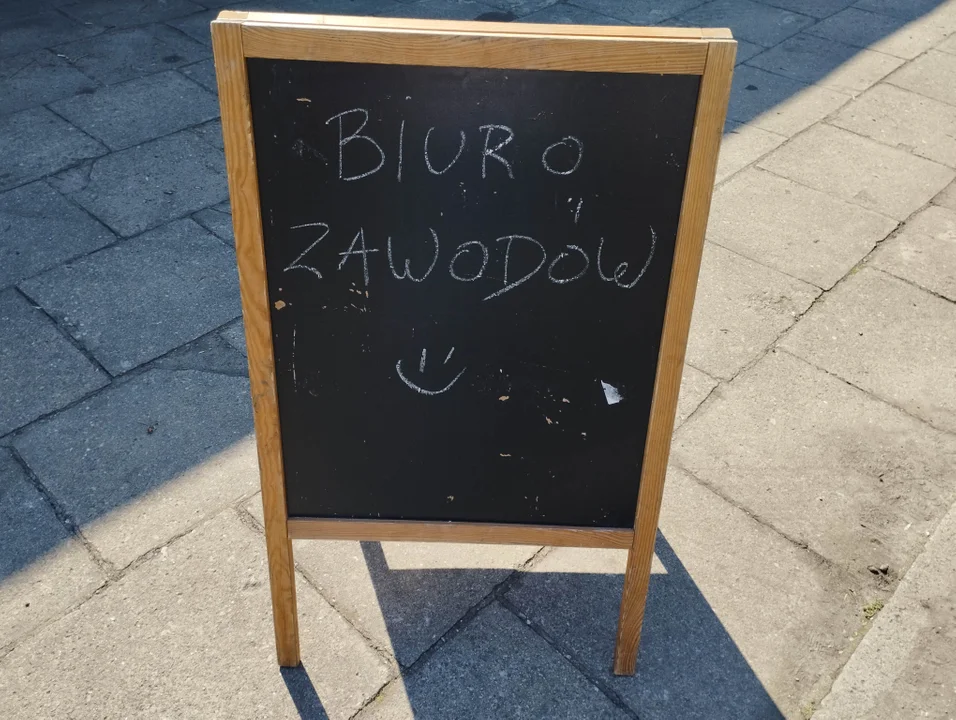 BIURO
ZAWODÓW